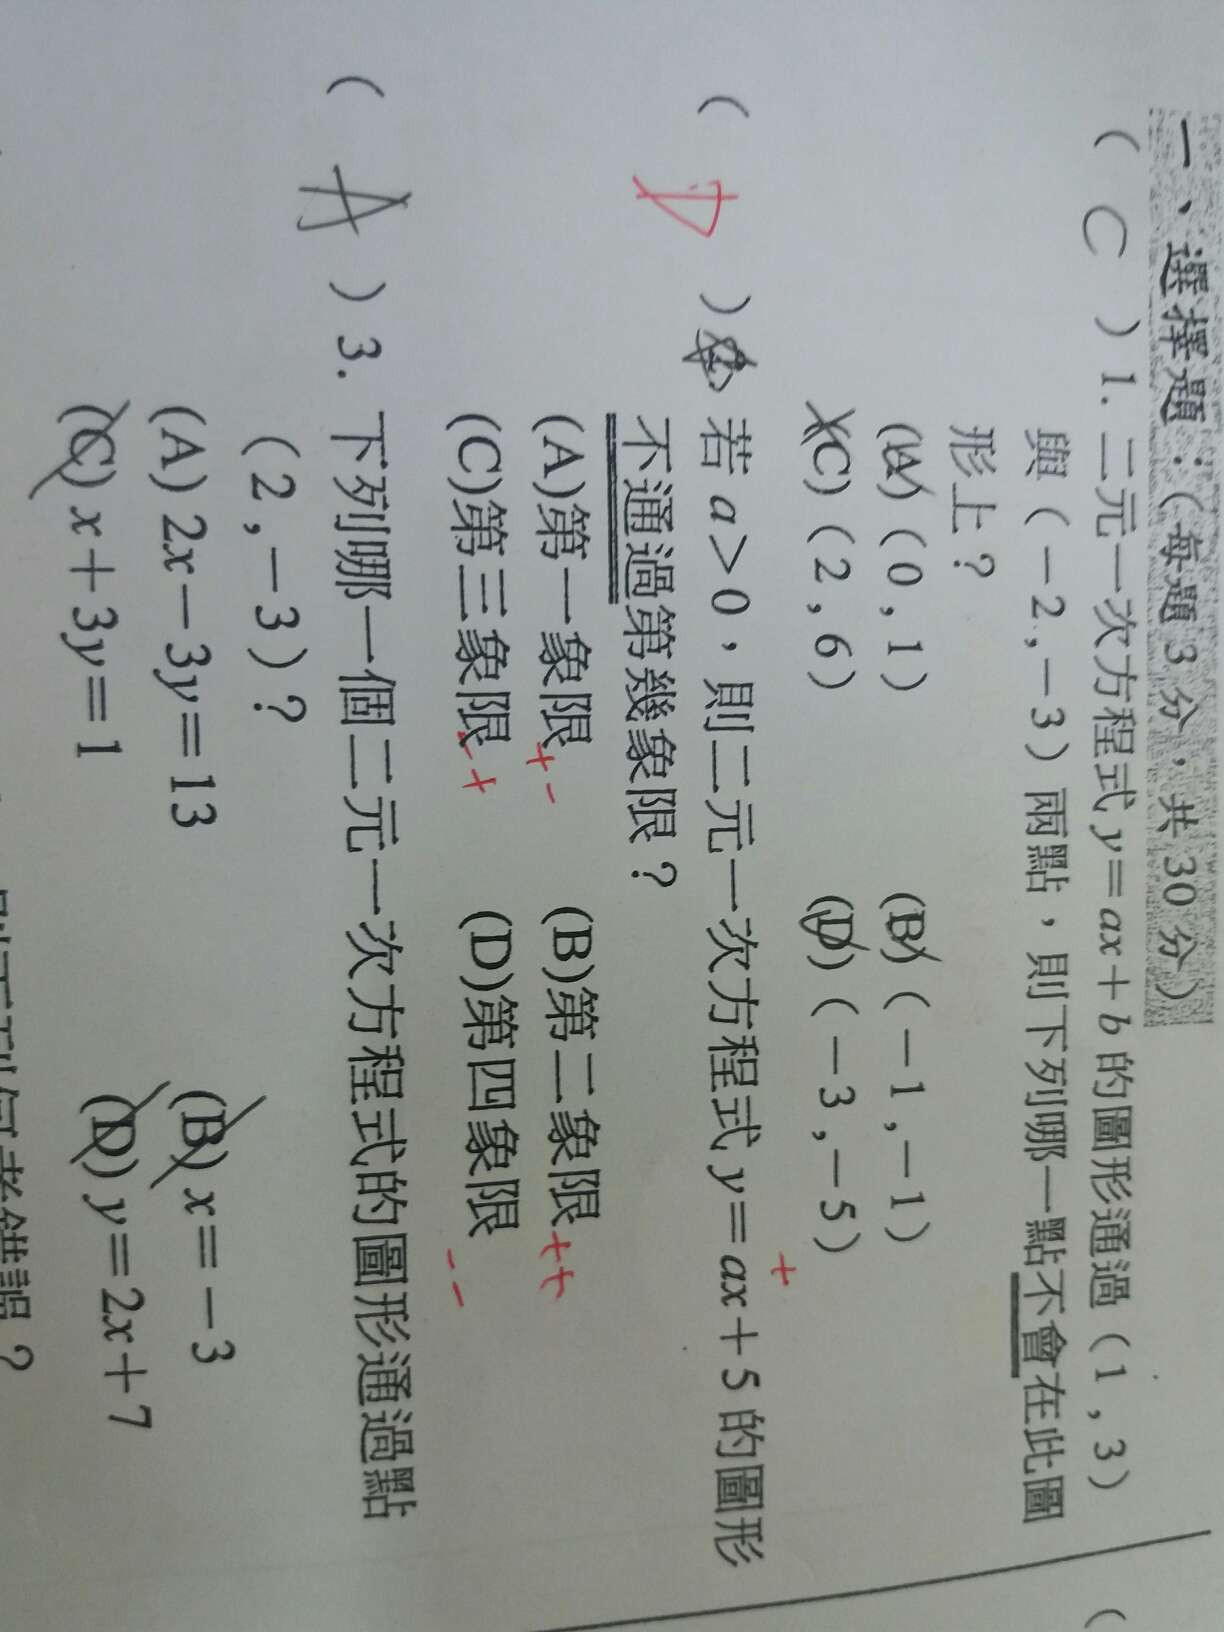 一、選擇題：(每題3分，共30分)
( C ) 1. 二元一次方程式 y=ax+b 的圖形通過 (1,3)
與 (-2,-3) 兩點，則下列哪一點不會在此圖
形上？
(A) (0,1) (B) (-1,-1)
(C) (2,6) (D) (-3,-5)
+
( D ) 若 a>0，則二元一次方程式 y=ax+5 的圖形
不通過第幾象限？
(A)第一象限 +- (B)第二象限 ++
(C)第三象限 -+ (D)第四象限 --
( A ) 3. 下列哪一個二元一次方程式的圖形通過點
(2,-3)？
(A) 2x-3y=13 (B) x=-3
(C) x+3y=1 (D) y=2x+7